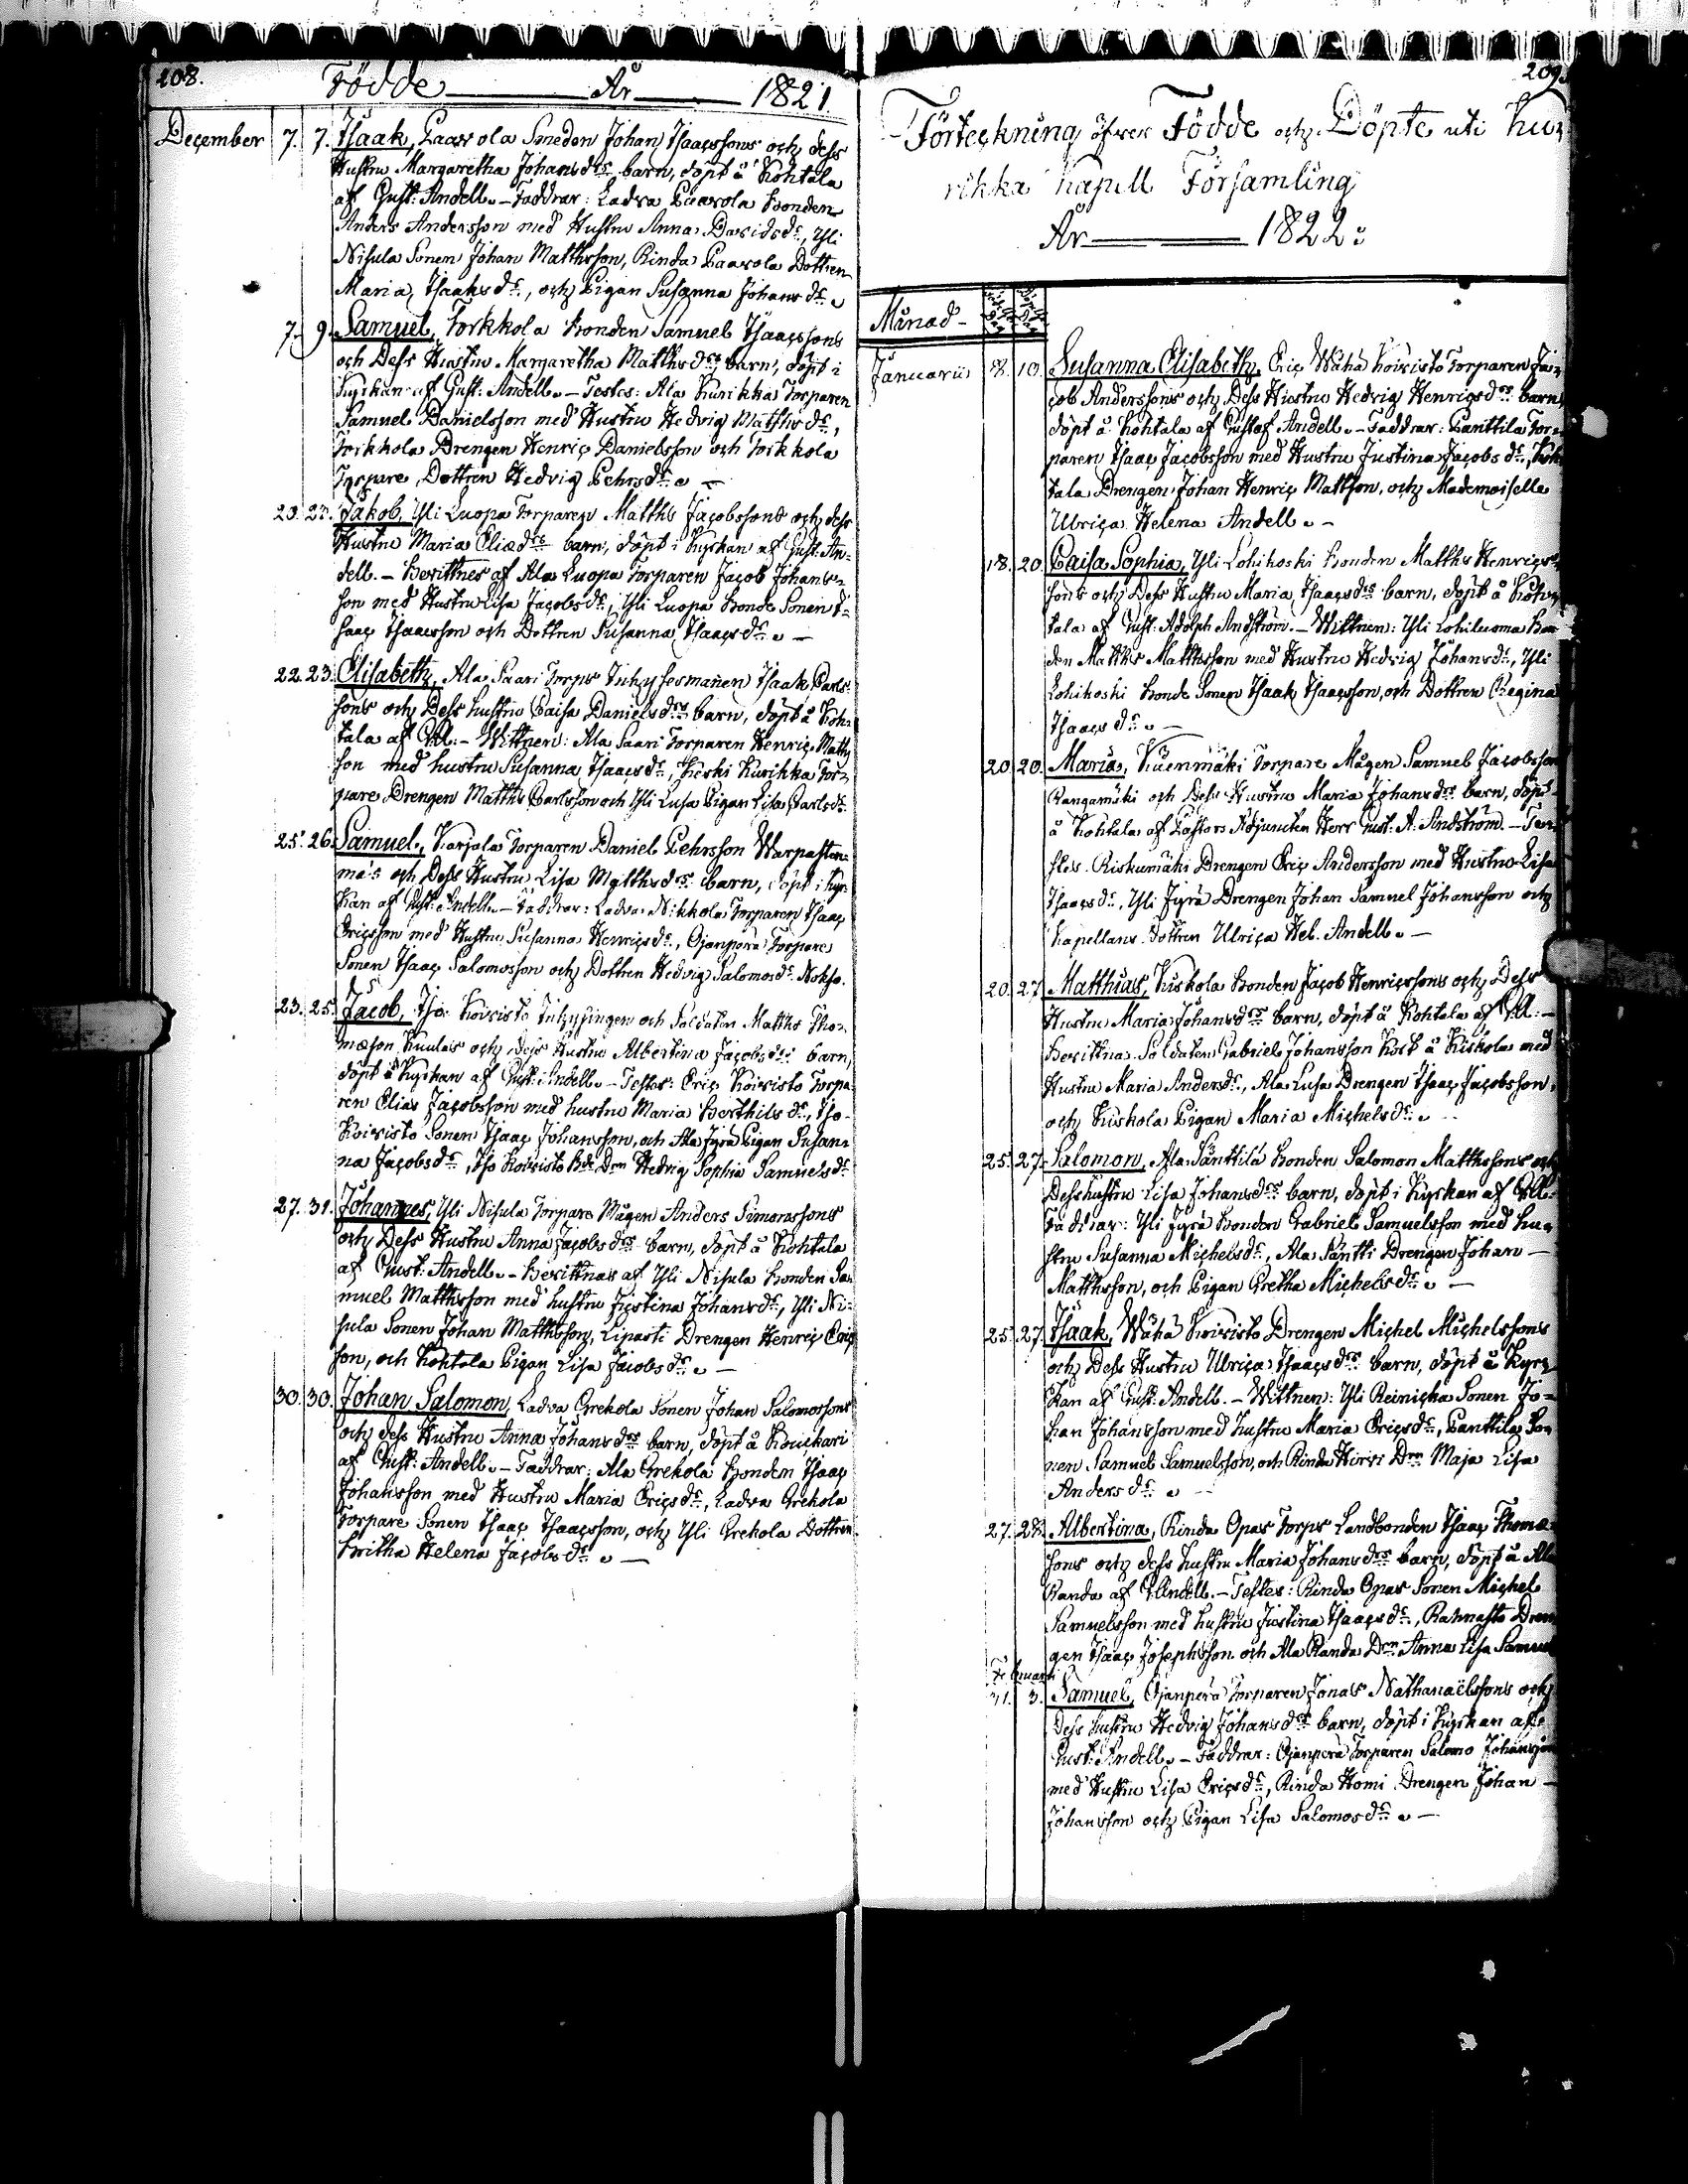 208.
Födde — År — 1821.
December 7. 7. Isaak, Paavola Smeden Johan Isaacssons och dess
Hustru Margaretha Johansdrs barn, döpt å Kohtala
af Gust: Andell. – Faddrar: Ladva Paavola Bonden
Anders Andersson med Hustru Anna Davidsdr, Yli
Nisula Sonen Johan Matthsson, Rinda Paavola Dottren
Maria Isaaksdr, och Pigan Susanna Johansdr. –
7. 9. Samuel, Torkkola Bonden Samuel Isaacssons
och Dess Hustru Margaretha Matthsdrs barn, döpt i
Kyrkan af Gust: Andell. – Testes: Ala Kurikka Torparen
Samuel Danielsson med Hustru Hedvig Matthsdr,
Torkkola Drengen Henric Danielsson och Torkkola
Torpare Dottren Hedvig Pehrsdr. –
20. 23. Jakob, Yli Luopa Torparen Matths Jacobssons och dess
Hustru Maria Eliædrs barn, döpt i Kyrkan af Gust: An-
dell. – Bevittnes af Ala Luopa Torparen Jacob Johans-
son med Hustru Lisa Jacobsdr, Yli Luopa Bonde Sonen I-
saac Isaacsson och Dottren Susanna Isaacsdr. –
22. 23. Elisabeth, Ala Saari Torps Inhysesmannen Isaak Carls-
sons och Dess hustru Caisa Danielsdrs barn, döpt å Koh-
tala af GAll: – Wittnen: Ala Saari Torparen Henric Matths
son med hustru Susanna Isaacsdr, Keski Kurikka Tor-
pare Drengen Matths Carlsson och Yli Lusa Pigan Lisa Carlsdr.
25. 26. Samuel, Karjola Torparen Daniel Pehrsson Warpasten-
mä's och Dess Hustru Lisa Matthsdrs barn, döpt i Kyr-
kan af Gust: Andell. – Faddrar: Ladva Nikkola Torparen Isaac
Ericsson med Hustru Susanna Henricsdr, Ojanperä Torpare
Sonen Isaac Salomosson och Dottren Hedvig Salomosdr.
23. 25. Jacob, Iso Koivisto Inhysingen och Soldaten Matths Tho-
mæson Kuulas och dess Hustru Albertina Jacobsdrs barn,
döpt å Kyrkan af Gust: Andell. – Testes: Eric Koivisto Torpa-
ren Elias Jacobsson med hustru Maria Berthilsdr, Iso
Koivisto Sonen Isaac Johansson, och Ala Jyrä Pigan Susan-
na Jacobsdr, Iso Koivisto Bde Drn Hedvig Sophia Samuelsdr
27. 31. Johannes, Yli Nisula Torpare Mågen Anders Simonssons
och Dess Hustru Anna Jacobsdrs barn, döpt å Kohtala
af Gust: Andell. – Bevittnas af Yli Nisula Bonden Sa-
muel Matthsson med hustru Justina Johansdr, Yli Ni-
sula Sonen Johan Matthsson, Liparti Drengen Henric Erics
son, och Kohtala Pigan Lisa Jacobsdr. –
30. 30. Johan Salomon, Ladva Grekola Sonen Johan Salomossons
och dess Hustru Anna Johansdrs barn, döpt å Kouckari
af Gust: Andell. – Faddrar: Ala Grekola Bonden Isaac
Johansson med Hustru Maria Ericsdr, Ladva Grekola
Torpare Sonen Isaac Isaacsson, och Yli Grekola Dottren
Britha Helena Jacobsdr. –
209.
Förteckning öfver Födde och Döpte uti Kuu-
rikka Kapell Församling
År — 1822.
Månad
Januarii 8. 10. Susanna Elisabeth, Eric Wähä Koivisto Torparen Ja-
cob Anderssons och Dess Hustru Hedvig Henricsdrs barn,
döpt å Kohtala af Gustaf Andell. – Faddrar: Panttila Tor-
paren Isaac Jacobsson med Hustru Justina Jacobsdr, Koh-
tala Drengen Johan Henric Mattsson, och Mademoiselle
Ulrica Helena Andell. –
18. 20. Caisa Sophia, Yli Lohikoski Bonden Matths Henrics-
sons och Dess Hustru Maria Isaacsdrs barn, döpt å Koh-
tala af Gust: Adolph Andström. – Wittnen: Yli Lohiluoma Bon-
den Matths Matthsson med Hustru Hedvig Johansdr, Yli
Lohikoski Bonde Sonen Isaak Isaacsson, och Dottren Regina
Isaacsdr. –
20. 20. Maria, Kuenmäki Torpare Mågen Samuel Jacobsson
Rangamäki och Dess Hustru Maria Johansdrs barn, döpt
å Kohtala af Pastors Adjuncten Herr Gust: A. Andström – Tes-
tes. Riskumäki Drengen Eric Andersson med Hustru Lisa
Isaacsdr, Yli Jyrä Drengen Johan Samuel Johansson och
Kapellans Dottren Ulrica Hel. Andell. –
20. 27. Matthias, Kiskola Bonden Jacob Henricssons och Dess
Hustru Maria Johansdrs barn, döpt å Kohtala af GAll: –
Bevittna Soldaten Gabriel Johansson Kort å Kiskola med
Hustru Maria Andersdr, Ala Lusa Drengen Isaac Jacobsson,
och Kiskola Pigan Maria Michelsdr.
25. 27. Salomon, Ala Säntti Bonden Salomon Matthssons och
Dess hustru Lisa Johansdrs barn, döpt i Kyrkan af GAll.
Faddrar: Yli Jyrä Bonden Gabriel Samuelsson med hu-
stru Susanna Michelsdr, Ala Säntti Drengen Johan –
Matthsson, och Pigan Gretha Michelsdr. –
25. 27. Isaak, Wähä Koivisto Drengen Michel Michelssons
och Dess Hustru Ulrica Isaacsdrs barn, döpt å Kyr-
kan af Gust: Andell. – Wittnen: Yli Reinicka Sonen Jo-
han Johansson med hustru Maria Ericsdr, Panttila So-
nen Samuel Samuelsson, och Rinda Hirvi Drn Maja Lisa
Andersdr.
27. 28. Albertina, Rinda Opas Torps Landbonden Isaac Thomæ-
sons och dess hustru Maria Johansdrs barn, döpt å Ala
Randa af GAndell. – Testes: Rinda Opas Sonen Michel
Samuelsson med hustru Justina Isaacsdr, Rahnasto Dren-
gen Isaac Josephsson och Ala Randa Drn Anna Lisa Samuel
Februarii
31. 3. Samuel, Ojanperä Torparen Jonas Nathanaëlssons och
Dess hustru Hedvig Johansdrs barn, döpt i Kyrkan af
Gust: Andell. – Faddrar: Ojanperä Torparen Salomo Johansson
med Hustru Lisa Ericsdr, Rinda Homi Drengen Johan –
Johansson och Pigan Lisa Salomosdr. –